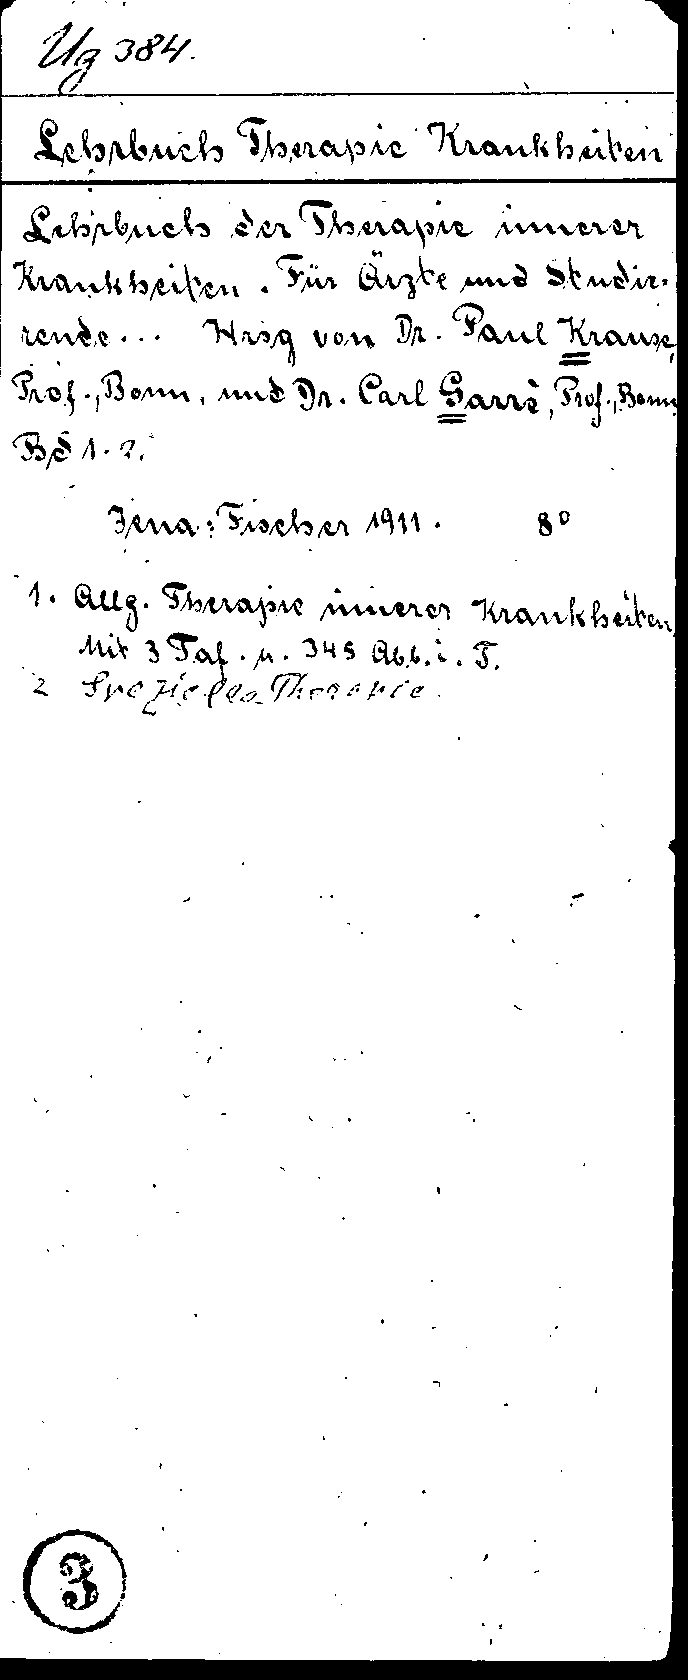 Ug 384.
Lehrbuch Therapie Krankheiten
Lehrbuch der Therapie innerer
Krankheiten. Für Ärzte und Studie-
rende... Hrsg von Dr. Paul Krause,
Prof., Bonn, und Dr. Carl Garrè, Prof., Bonn
Bd 1. 2.
Jena: Fischer 1911. 8°
1. Allg. Therapie innerer Krankheiten.
Mit 3 Taf. u. 345 Abb. i. T.
2 Spezielle Therapie.
3